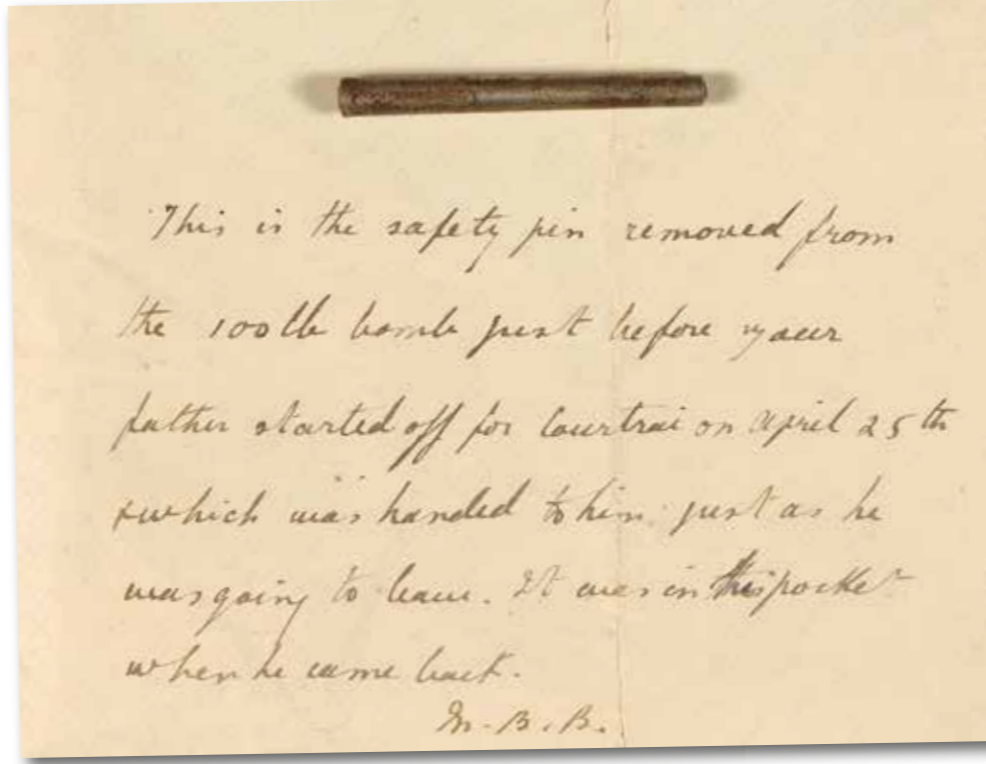 This is the safety pin removed from
the 100lb bomb just before your
father started off for Courtrai on April 25th
& which was handed to him just as he
was going to leave. It was in his pocket
when he came back.
M.B.B.